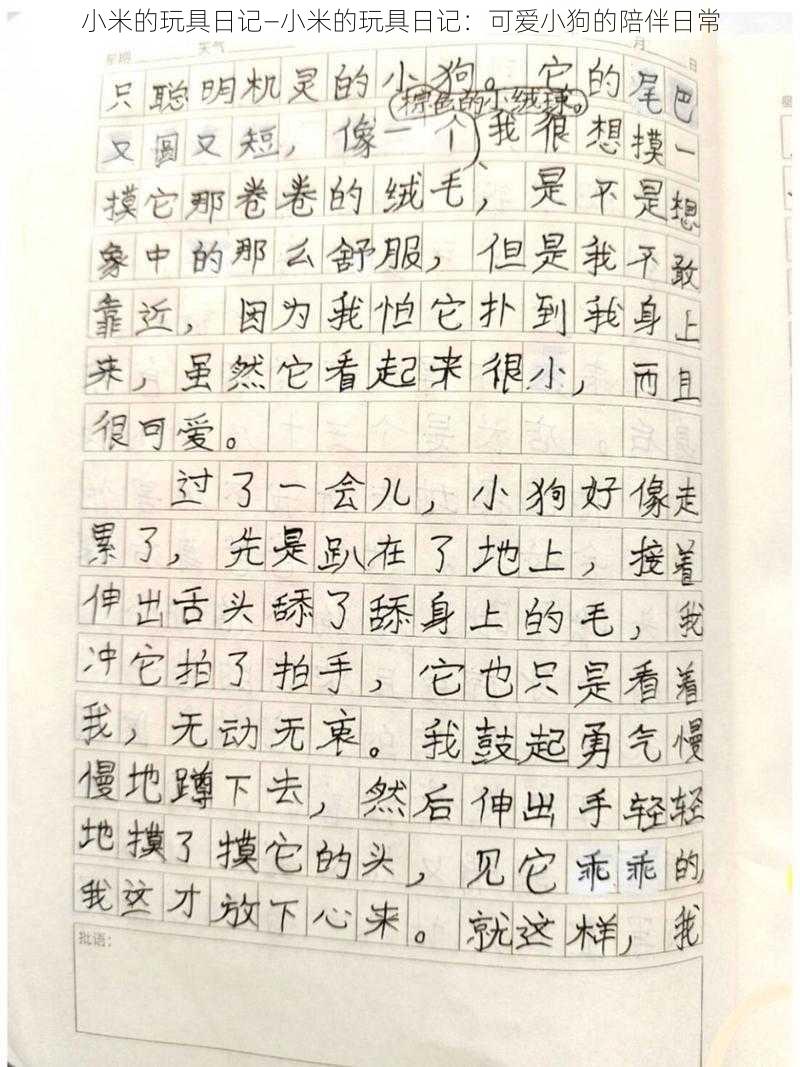 小米的玩具日记—小米的玩具日记：可爱小狗的陪伴日常
星期 天气 月 日
只聪明机灵的小狗。它的尾巴
棕色的小绒球。
又圆又短，像一个我很想摸一
摸它那卷卷的绒毛，是不是想
象中的那么舒服，但是我不敢
靠近，因为我怕它扑到我身上
来，虽然它看起来很小，而且
很可爱。
过了一会儿，小狗好像走
累了，先是趴在了地上，接着
伸出舌头舔了舔身上的毛，我
冲它拍了拍手，它也只是看着
我，无动无衷。我鼓起勇气慢
慢地蹲下去，然后伸出手轻轻
地摸了摸它的头，见它乖乖的，
我这才放下心来。就这样，我
批语：